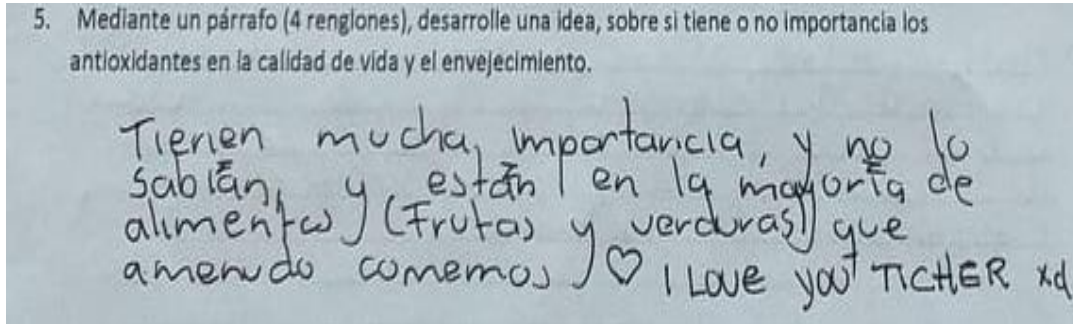 5. Mediante un párrafo (4 renglones), desarrolle una idea, sobre si tiene o no importancia los
antioxidantes en la calidad de vida y el envejecimiento.
Tienen mucha, importancia, y no lo
sabían, y están en la mayoría de
alimentos (Frutas y verduras) que
amenudo comemos ♡ I LOVE YOU TICHER xd